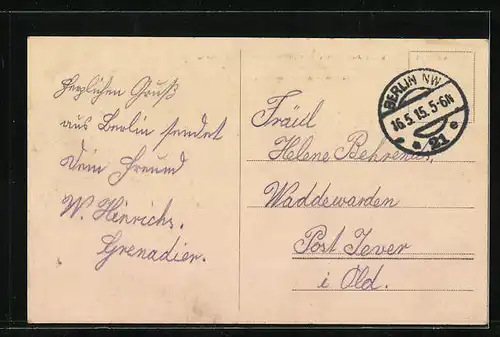 Herzlichen Gruß
aus Berlin sendet
Dein Freund
W. Hinrichs.
Grenadier.
BERLIN NW
16.5.15.5-6N
* 21 e
Fräul
Helene Behrends,
Waddewarden
Post Jever
i Old.